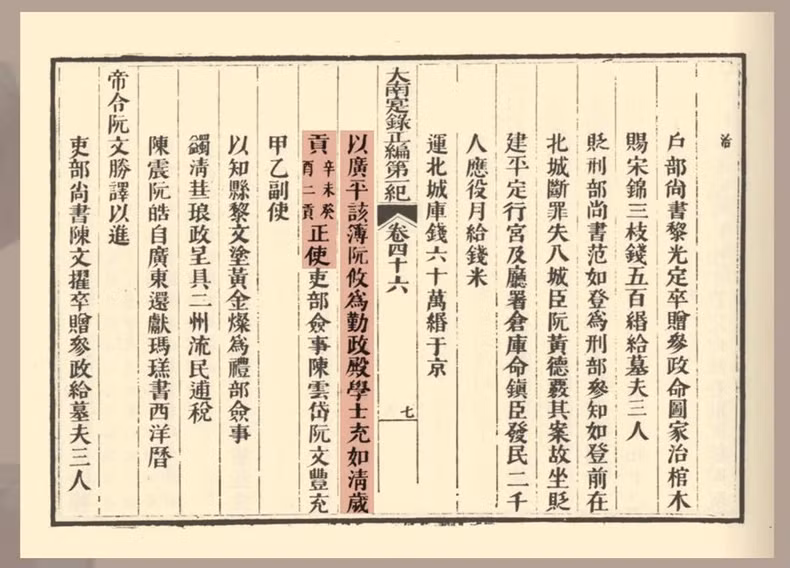 戶部尚書黎光定卒贈參政命圖家治棺木
賜宋錦三枝錢五百緡給墓夫三人
貶刑部尚書范如登爲刑部參知如登前在
北城斷罪失入城臣阮黃德覈其案故坐貶
建平定行宮及廳署倉庫命鎭臣發民二千
人應役月給錢米
運北城庫錢六十萬緡于京
大南寔錄正編第一紀 卷四十六 七
以廣平該簿阮攸爲勤政殿學士充如清歲
貢辛未癸酉二貢正使吏部僉事陳雲岱阮文豐充
甲乙副使
以知縣黎文堃黃金燦爲禮部僉事
蠲清葩琅政呈具二州流民逋稅
陳震阮皓自廣東還獻瑪書西洋曆
帝令阮文勝譯以進
吏部尚書陳文擢卒贈參政給墓夫三人